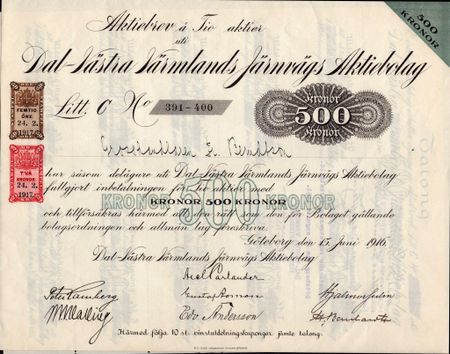 Aktiebrev å Tio aktier
uti
500
KRONOR
Dal-Västra Värmlands Järnvägs Aktiebolag
Litt. C No 391-400
Kronor
500
Kronor
FEMTIO
ÖRE
24. 2.
1917.
TVÅ
KRONOR
24. 2.
1917.
har såsom delägare uti Dal-Västra Värmlands Järnvägs Aktiebolag
fullgjort inbetalningen för tio aktier med
KRONOR 500 KRONOR
KRONOR 500 KRONOR
och tillförsäkras härmed all den rätt som den för Bolaget gällande
bolagsordningen och allmän lag föreskriva.
Göteborg den 15 Juni 1916.
Dal-Västra Värmlands Järnvägs Aktiebolag
Axel Carlander
Edv. Andersson
Härmed följa 10 st. vinstutdelningskuponger jämte talong.